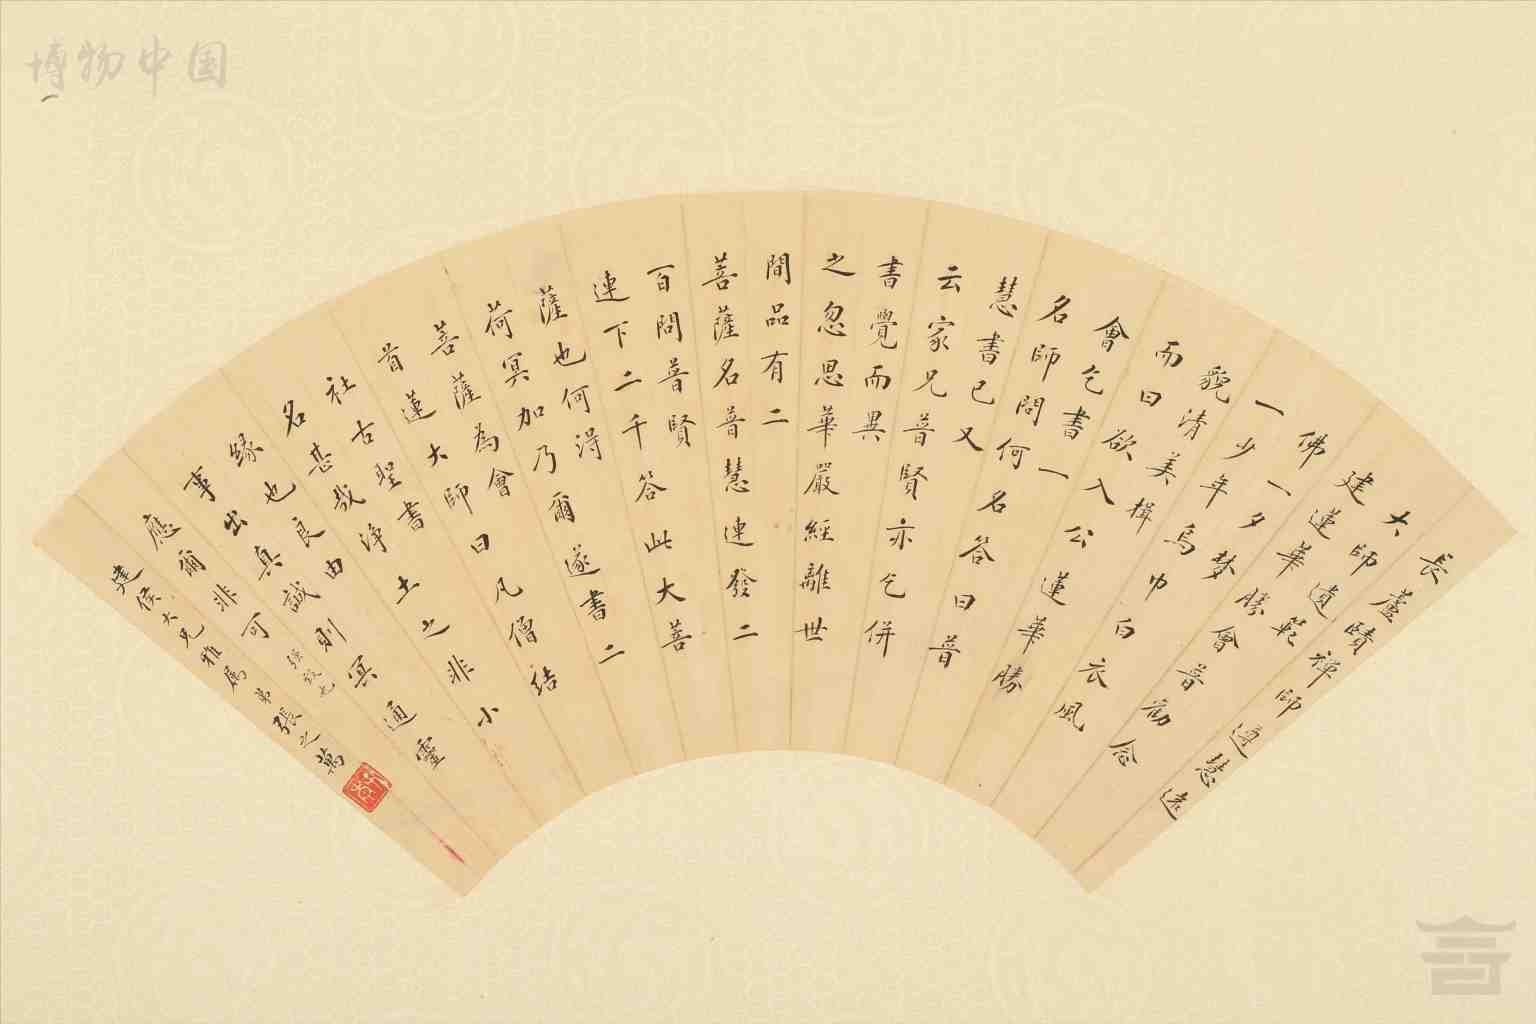 長蘆賾禪師遵慧遠
大師遺範
建蓮華勝會普勸念
佛一夕夢
一少年烏巾白衣風
貌清美揖
而曰欲入公蓮華勝
會乞書一
名師問何名答曰普
慧書已又
云家兄普賢亦乞併
書覺而異
之忽思華嚴經離世
間品有二
菩薩名普慧連發二
百問普賢
連下二千答此大菩
薩也何得
荷冥加乃爾遂書二
菩薩為會
首蓮大師曰凡僧結
社古聖書
名甚哉淨土之非小
緣也良由
事出真誠則冥通靈
應爾非可強致也
建侯大兄雅屬弟張之萬
博物中国